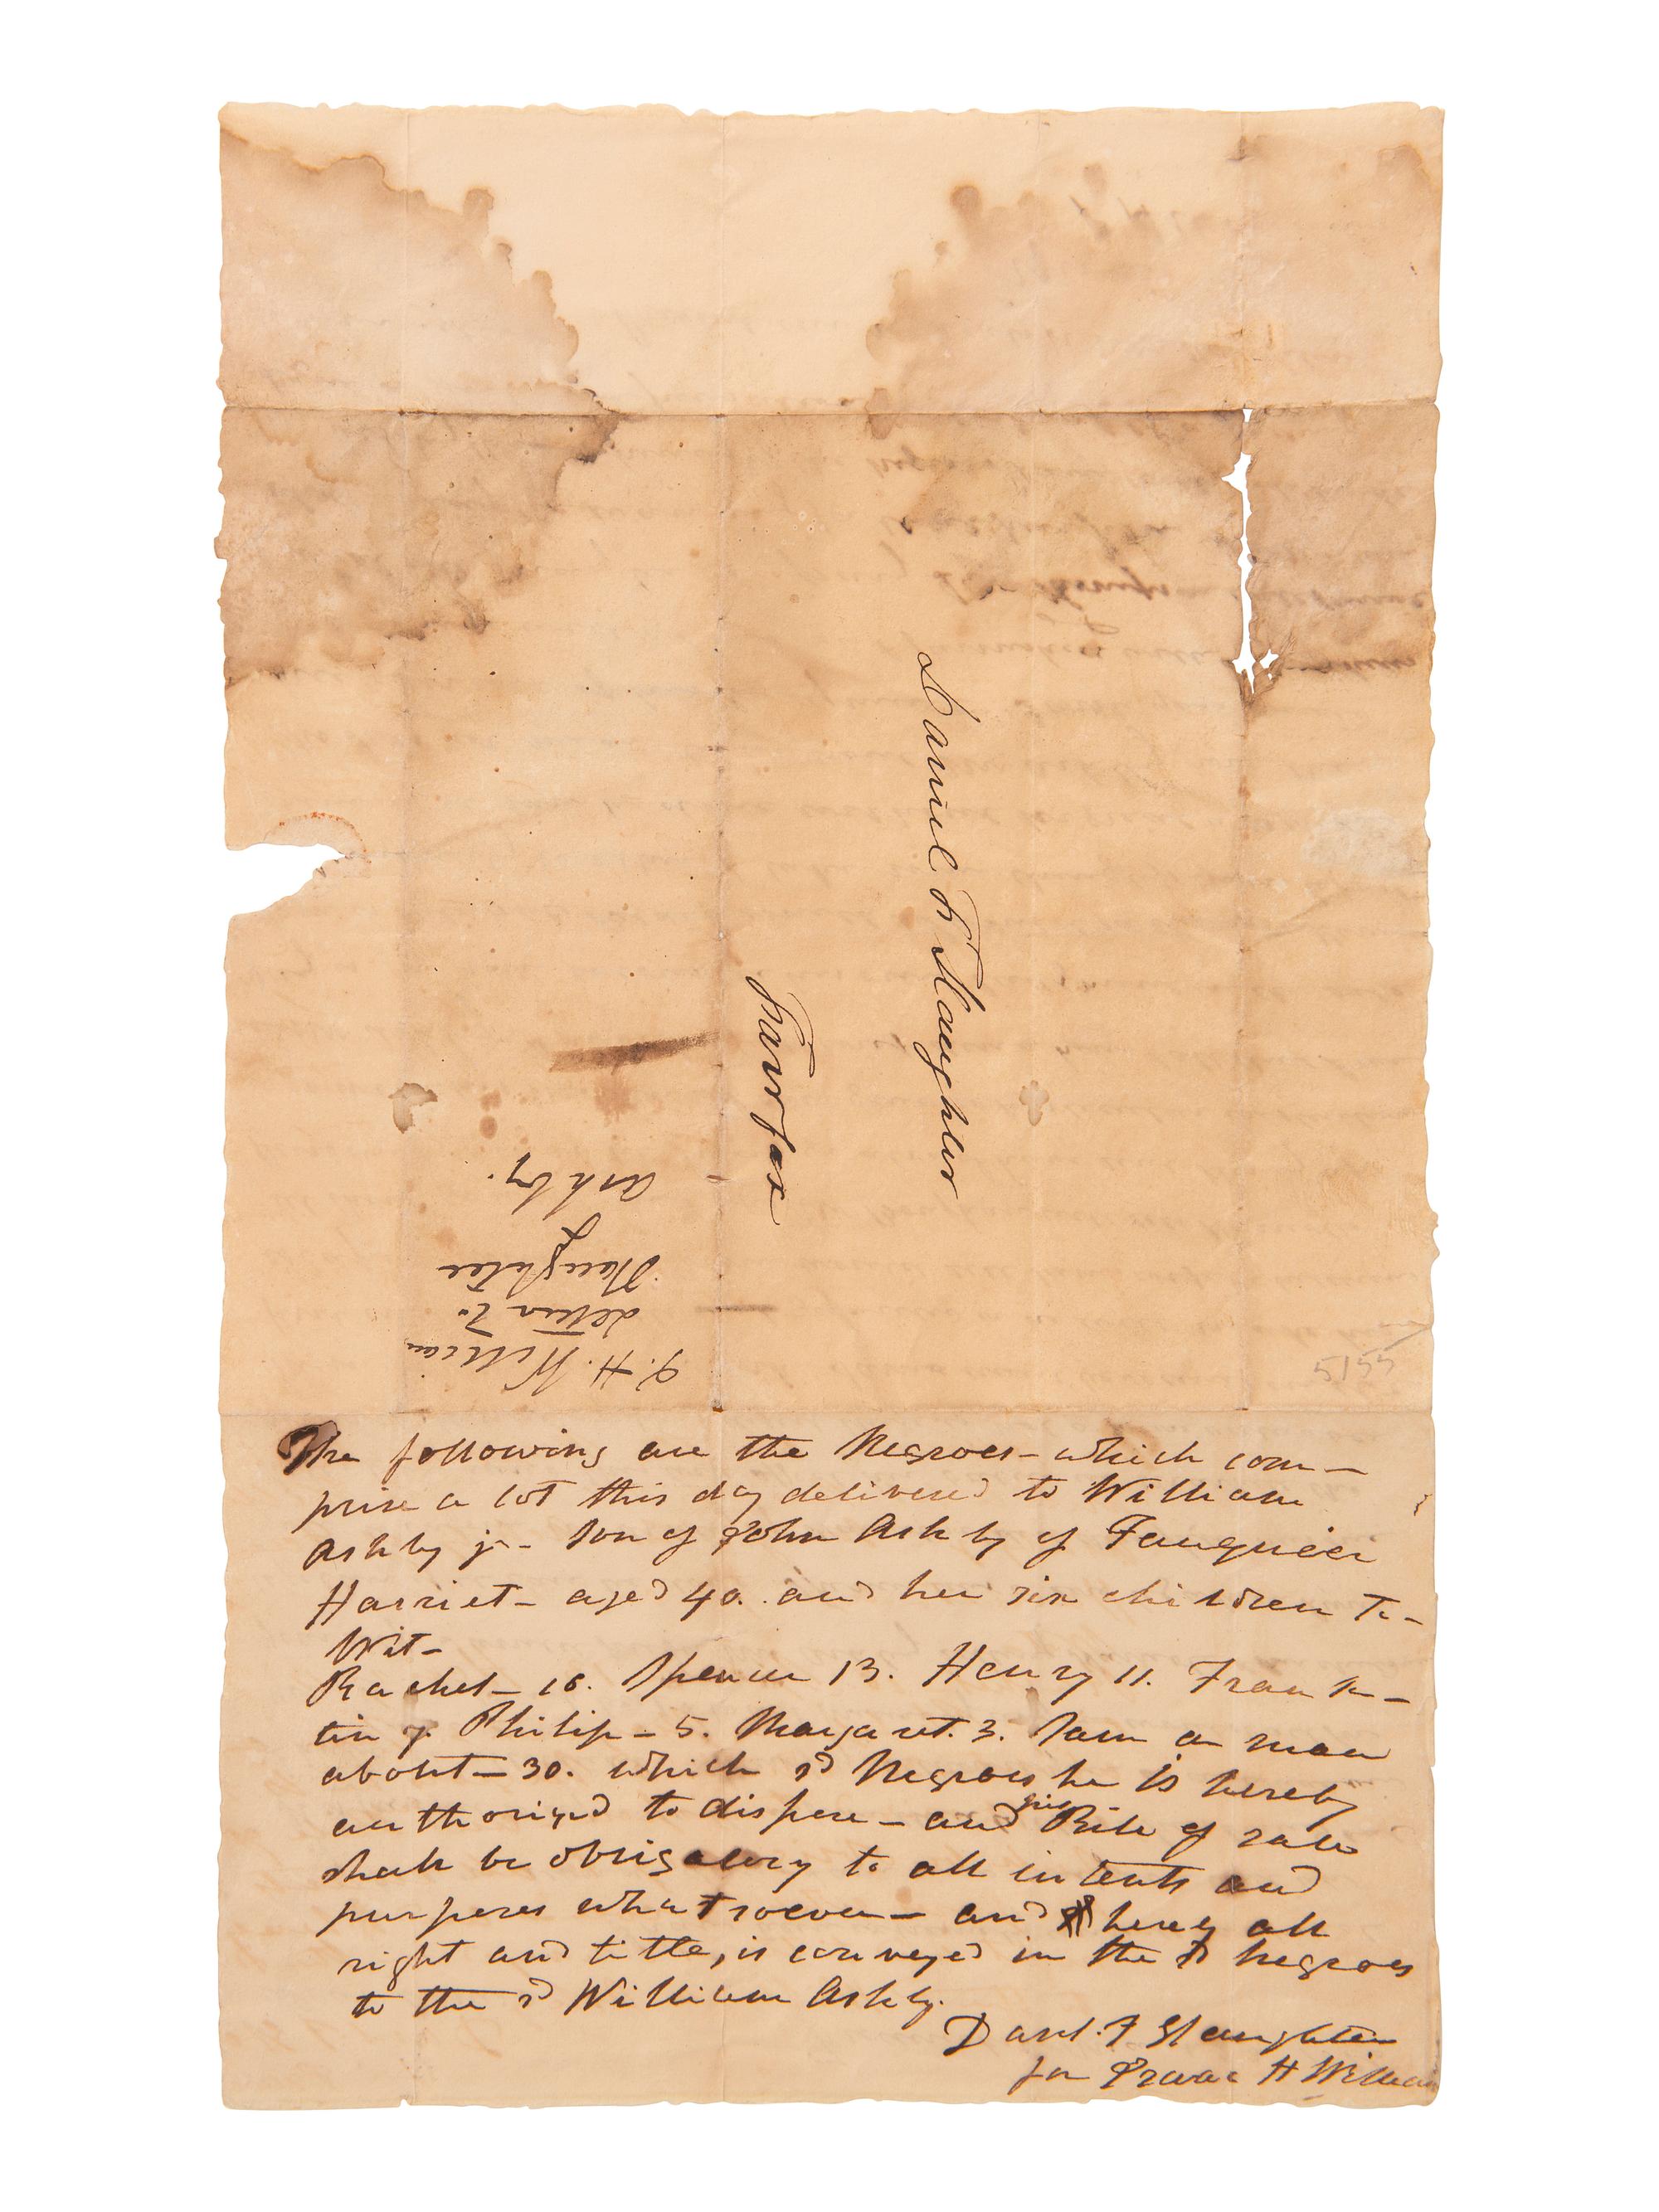 Daniel F Slaughter
Fairfax
I. H. William
letter to
Slaughter
&
Ashby.
5155
The following are the Negroes - which com-
prise a lot this day delivered to William
Ashby jr - Son of John Ashby of Fauquier
Harriet - aged 40. and her six children To-
Wit -
Rachel - 16. Spencer 13. Henry 11. Frank-
lin 7. Philip - 5. Margaret. 3. Sam a man
about - 30. which sd Negroes he is hereby
authorized to dispose - and his Bill of sale
shall be obligatory to all intents and
purposes whatsoever - and hereby all
right and title, is conveyed in the sd negroes
to the sd William Ashby.
Danl. F Slaughter
for Isaac H William